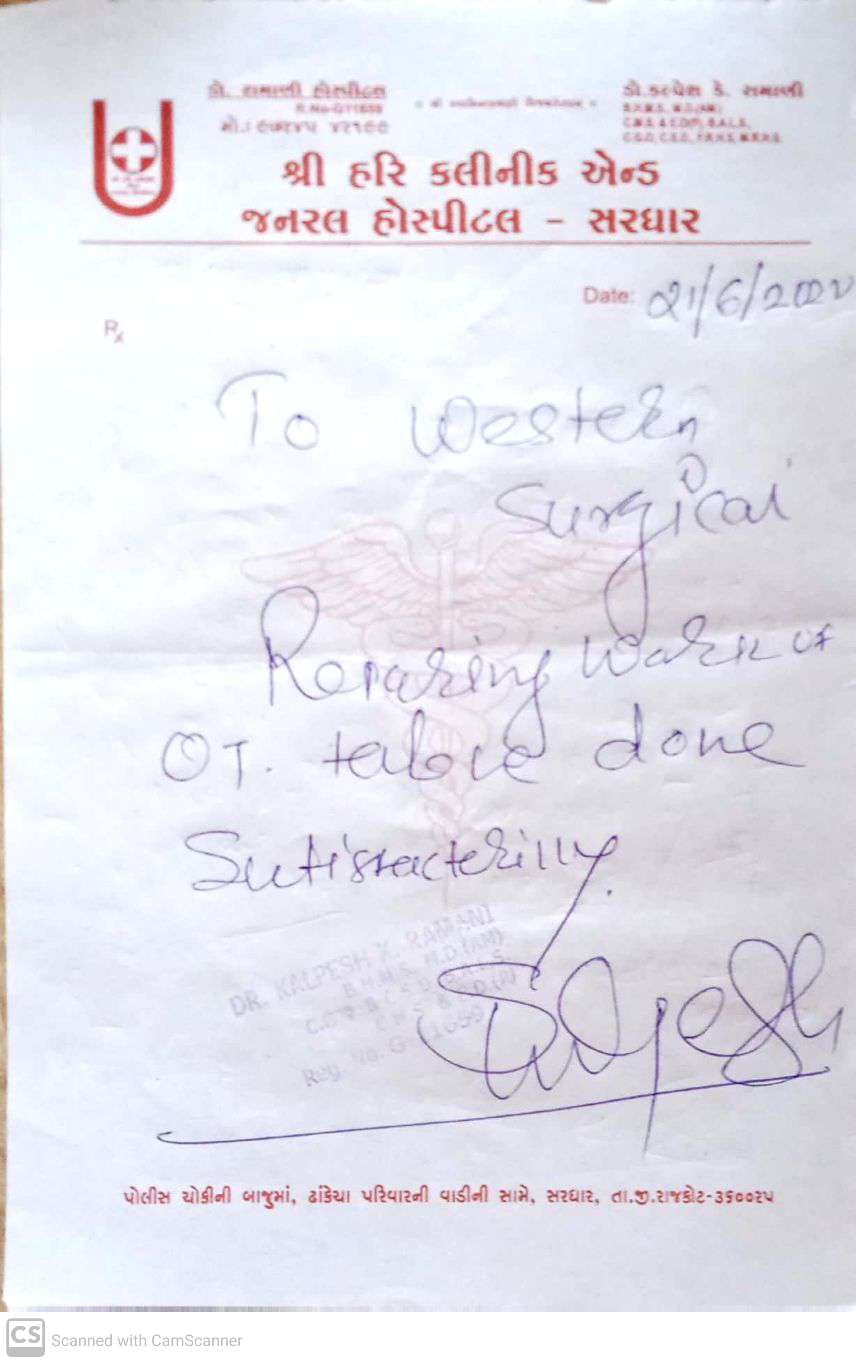 ડૉ. રામાણી હોસ્પીટલ
R.No-G11659
ડૉ.કલ્પેશ કે. રામાણી
શ્રી હરિ કલીનીક એન્ડ
જનરલ હોસ્પીટલ - સરધાર
Date: 21/6/2022
Rx
To Western
Surgical
Reparing work of
OT. table done
Sutisfacterilly.
DR. KALPESH K. RAMANI
Reg. No. G 11659
Kalpesh
પોલીસ ચોકીની બાજુમાં, ઢાંકેચા પરિવારની વાડીની સામે, સરધાર, તા.જી.રાજકોટ-૩૬૦૦૨૫
CS Scanned with CamScanner